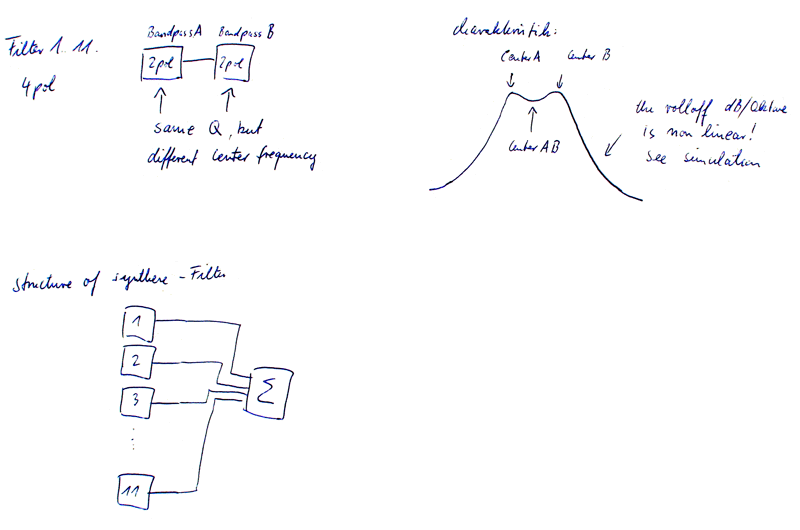 Filter 1..11.
4pol
BandpassA Bandpass B
2pol 2pol
same Q, but
different center frequency
charakteristik:
Center A Center B
Center AB
the rolloff dB/Oktave
is non linear!
see simulation
structure of synthese-Filter
1
2
3
11
Σ